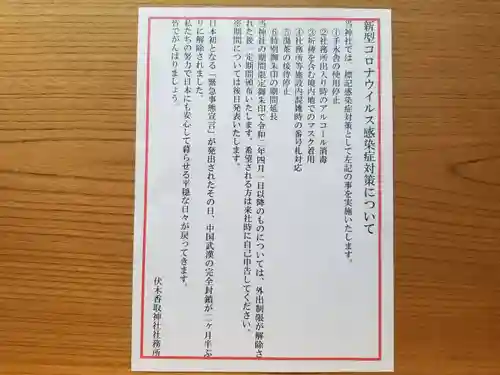 新型コロナウイルス感染症対策について
当神社では、標記感染症対策として左記の事を実施いたします。
①手水舎の使用停止
②社務所出入り時のアルコール消毒
③祈祷を含む境内地でのマスク着用
④社務所等施設内混雑時の番号札対応
⑤湯茶の接待停止
⑥特別御朱印の期間延長
当神社の期間限定御朱印で令和二年四月一日以降のものについては、外出制限が解除さ
れた後、一定期間頒布いたします。希望される方は来社時に自己申告してください。
密期間については後日発表いたします。
日本初となる「緊急事態宣言」が発出されたその日、中国武漢の完全封鎖が二ヶ月半ぶ
りに解除されました。
私たちの努力で日本にも安心して暮らせる平穏な日々が戻ってきます。
皆でがんばりましょう。
伏木香取神社社務所